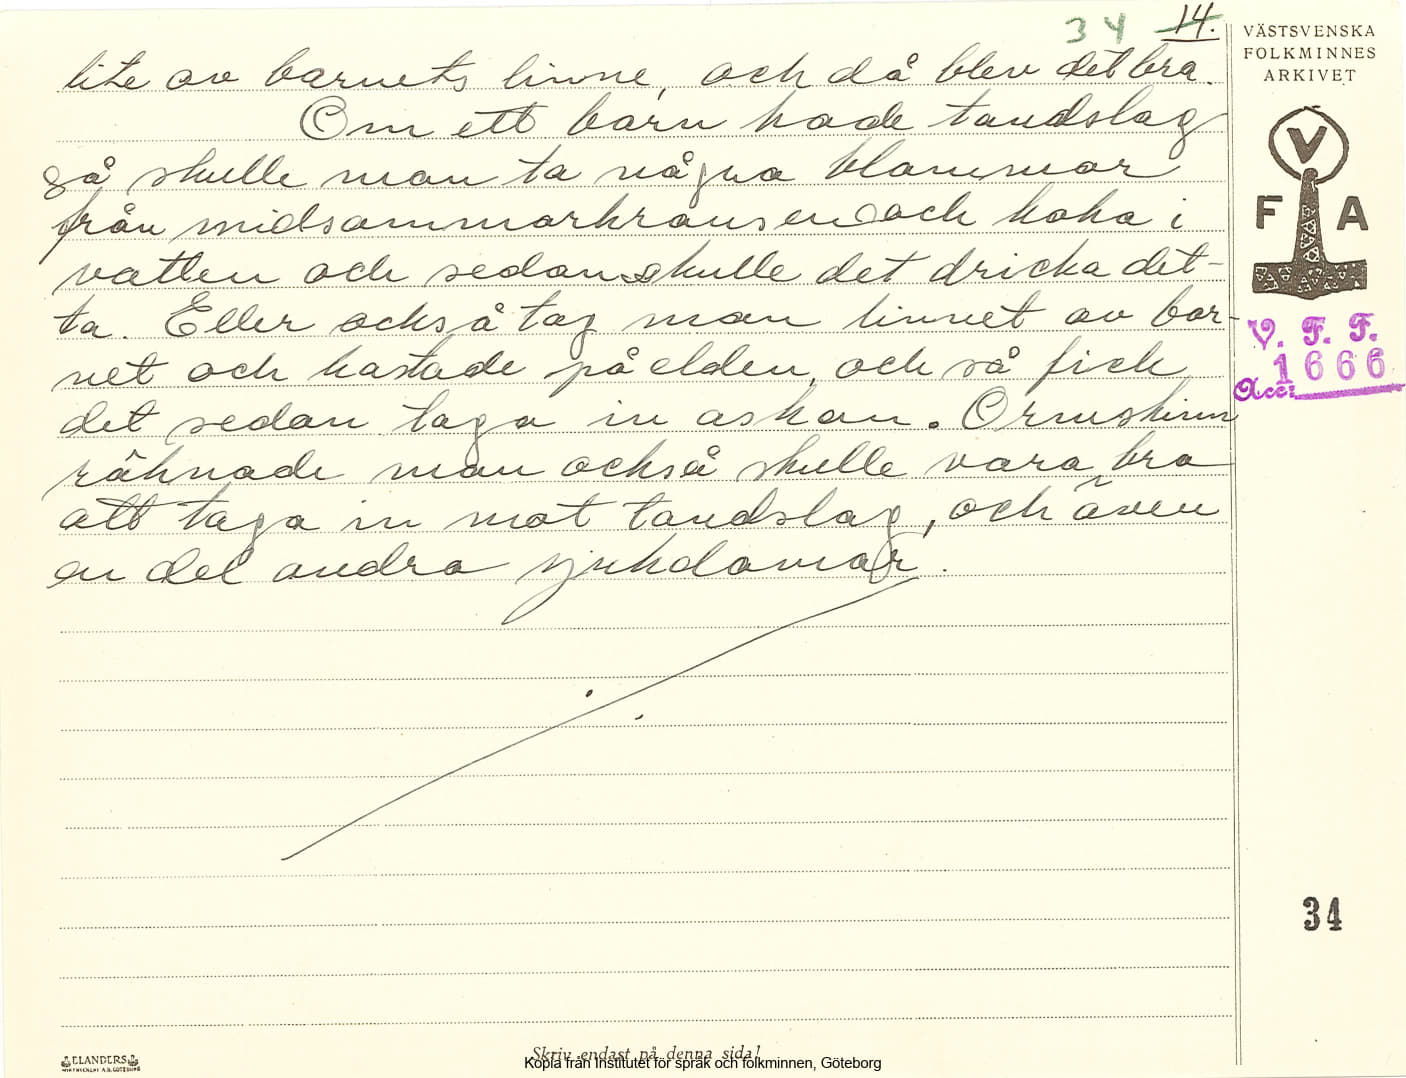 34 14.
lite av barnets linne, och då blev det bra.
Om ett barn hade tandslag
så skulle man ta några blommor
från midsommarkransen och koka i
vatten och sedan skulle det dricka det-
ta. Eller också tog man linnet av bar-
net och kastade på elden, och så fick
det sedan taga in askan. Ormskinn
räknade man också skulle vara bra
att taga in mot tandslag, och även
en del andra sjukdomar.
VÄSTSVENSKA
FOLKMINNES
ARKIVET
V
F A
V. F. F.
1666
Acc:
34
ELANDERS
Skriv endast på denna sida!
Kopia från Institutet för språk och folkminnen, Göteborg